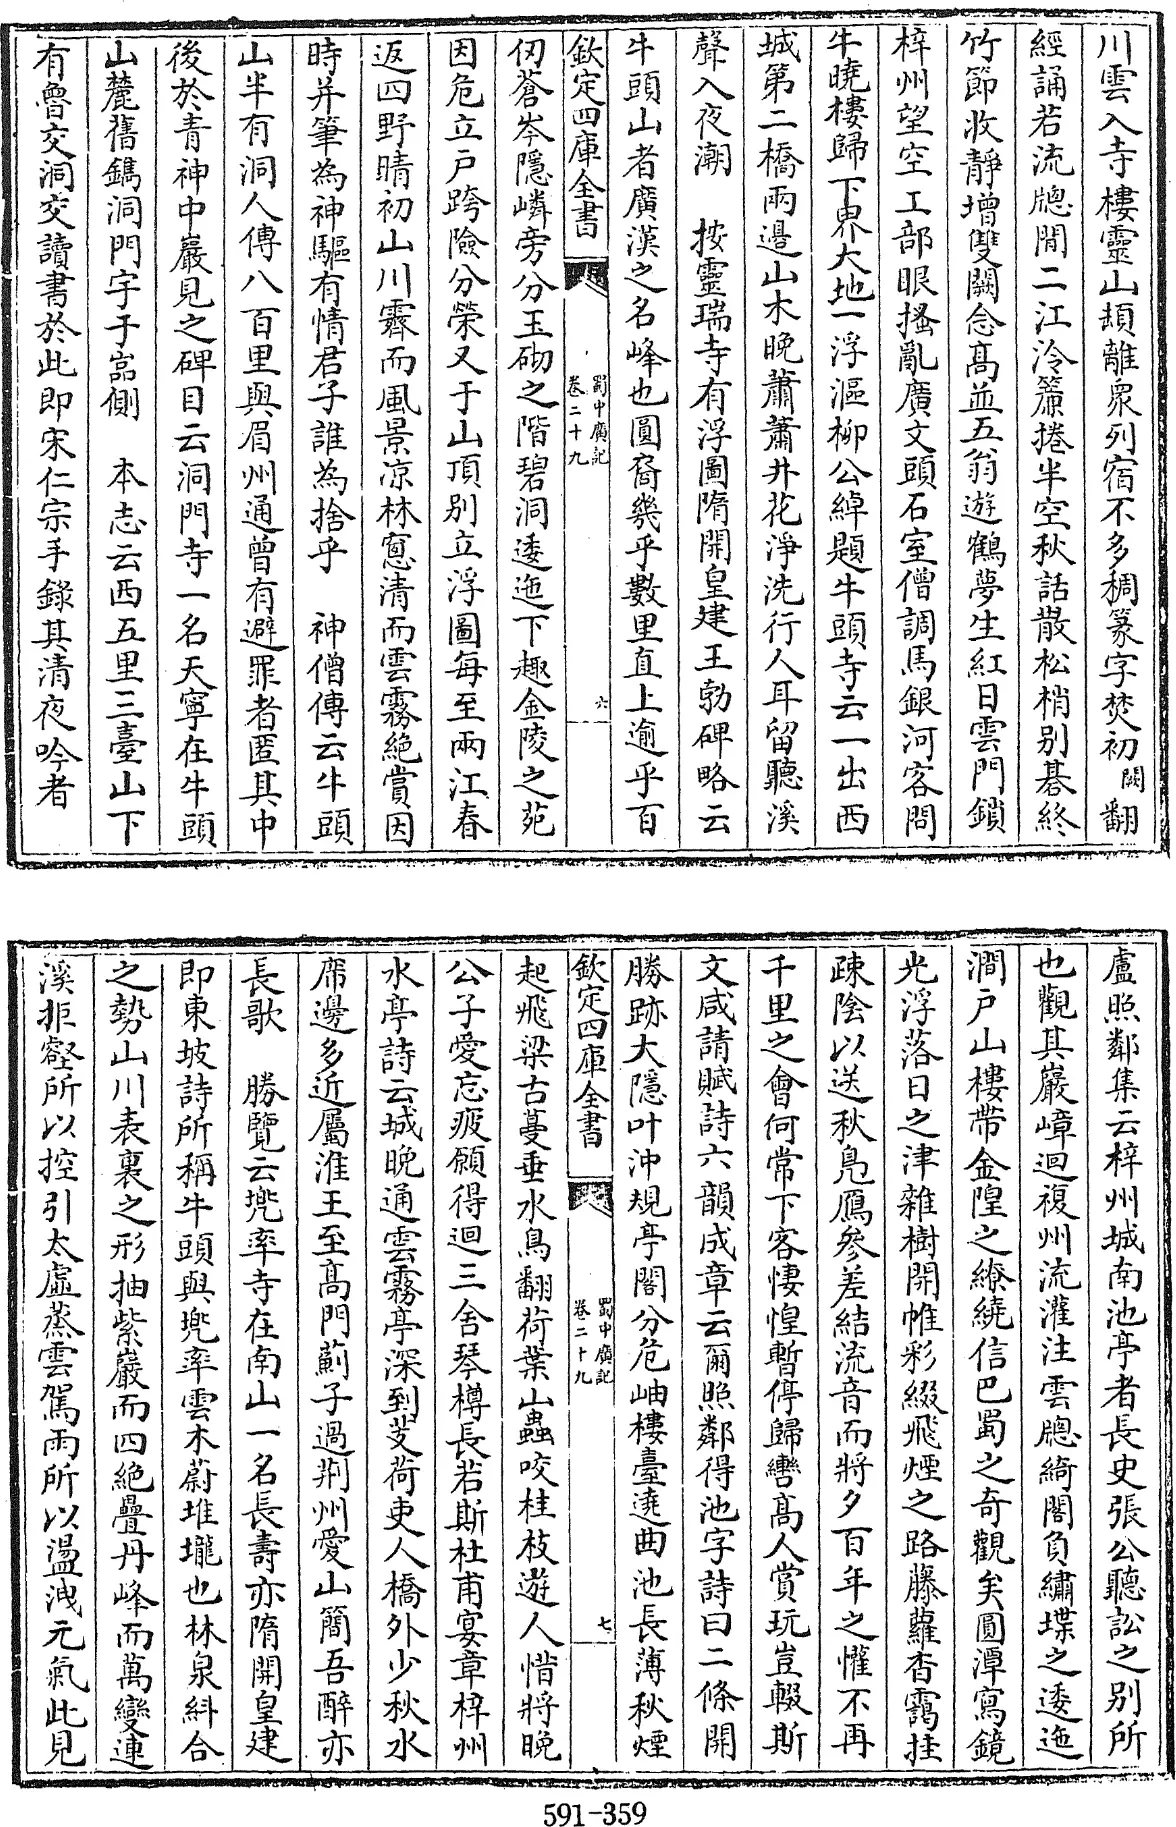 川雲入寺樓靈山頡離衆列宿不多稠篆字焚初闕翻
經誦若流牕閒二江泠簾捲半空秋話散松梢别碁終
竹節收靜增雙闕念髙並五翁遊鶴夢生紅日雲門鎖
梓州望空工部眼搔亂廣文頭石室僧調馬銀河客問
牛曉樓歸下界大地一浮漚柳公綽題牛頭寺云一出西
城第二橋兩邉山木晚蕭蕭井花淨洗行人耳留聽溪
聲入夜潮　按靈瑞寺有浮圖隋開皇建王勃碑略云
牛頭山者廣漢之名峰也圓窟幾乎數里直上逾乎百
欽定四庫全書
蜀中廣記
卷二十九
六
仞蒼岑隱嶙旁分玉砌之階碧洞逶迤下趣金陵之苑
因危立戸跨險分榮又于山頂别立浮圖每至兩江春
返四野晴初山川霽而風景凉林窻清而雲霧絶賞因
時并筆為神驅有情君子誰為捨乎　神僧傳云牛頭
山半有洞人傳八百里與眉州通曽有避罪者匿其中
後於青神中巖見之碑目云洞門寺一名天寧在牛頭
山麓舊鐫洞門宇于嵓側　本志云西五里三臺山下
有魯交洞交讀書於此即宋仁宗手錄其清夜吟者
盧照鄰集云梓州城南池亭者長史張公聽訟之别所
也觀其巖嶂迴複州流灌注雲牕綺閣負繡堞之逶迤
澗戸山樓帶金隍之繚繞信巴蜀之奇觀矣圓潭寫鏡
光浮落日之津雜樹開帷彩綴飛煙之路藤蘿杳靄挂
疎陰以送秋鳧鴈參差結流音而將夕百年之懽不再
千里之會何常下客悽惶暫停歸轡髙人賞玩豈輟斯
文咸請賦詩六韻成章云爾照鄰得池字詩曰二條開
勝跡大隱叶沖規亭閣分危岫樓臺遶曲池長薄秋煙
欽定四庫全書
蜀中廣記
卷二十九
七
起飛梁古蔓垂水鳥翻荷葉山蟲咬桂枝遊人惜將晚
公子愛忘疲願得迴三舍琴樽長若斯杜甫宴章梓州
水亭詩云城晚通雲霧亭深到芰荷吏人橋外少秋水
席邊多近屬淮王至髙門薊子過荆州愛山簡吾醉亦
長歌　勝覽云兠率寺在南山一名長壽亦隋開皇建
即東坡詩所稱牛頭與兠率雲木蔚堆壠也林泉糾合
之勢山川表裏之形抽紫巖而四絶疊丹峰而萬變連
溪拒壑所以控引太虛蒸雲駕雨所以溫洩元氣此見
591-359